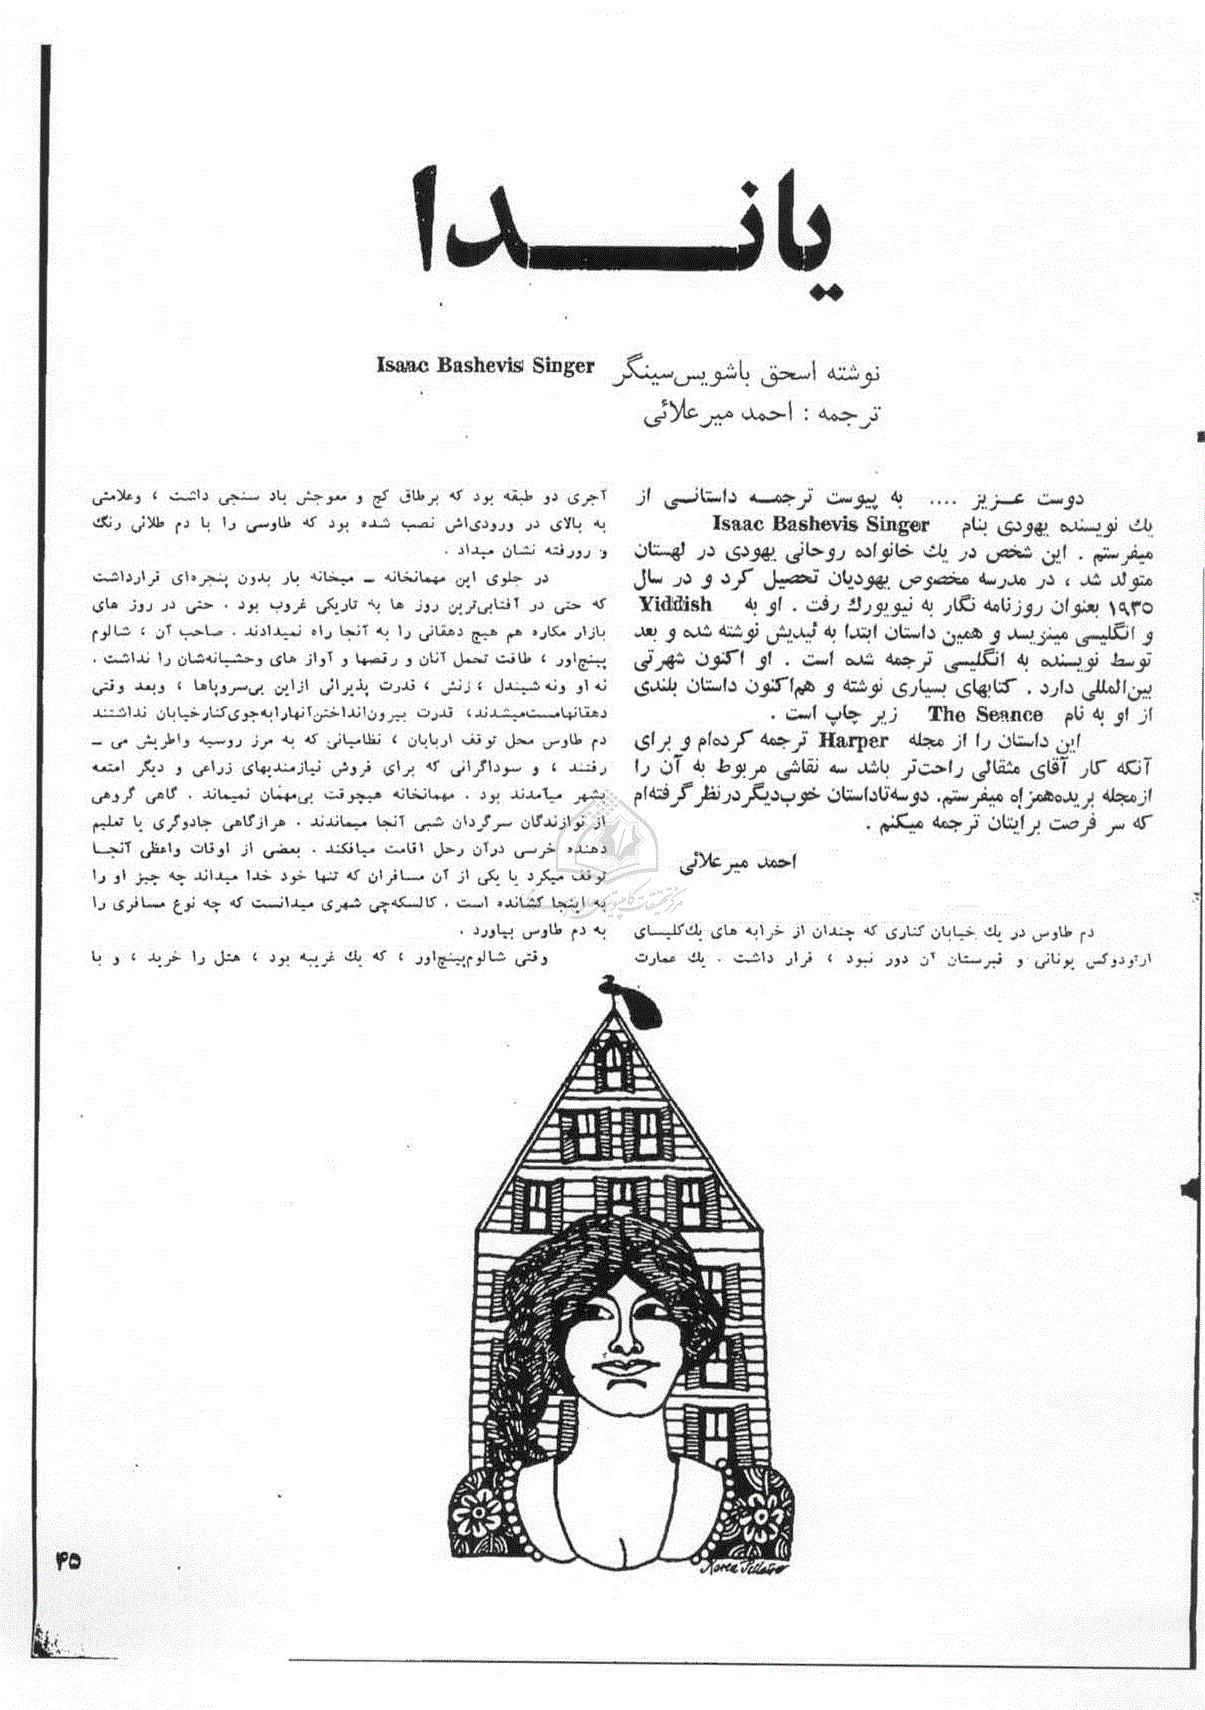 یانـــدا
نوشته اسحق باشویس‌سینگر Isaac Bashevis Singer
ترجمه : احمد میرعلائی
دوست عـزیز .... به پیوست ترجمـه داستانـی از
یك نویسنده یهودی بنام Isaac Bashevis Singer
میفرستم . این شخص در یك خانواده روحانی یهودی در لهستان
متولد شد ، در مدرسه مخصوص یهودیان تحصیل کرد و در سال
۱۹۳۵ بعنوان روزنامه نگار به نیویورك رفت . او به Yiddish
و انگلیسی مینویسد و همین داستان ابتدا به ئیدیش نوشته شده و بعد
توسط نویسنده به انگلیسی ترجمه شده است . او اکنون شهرتی
بین‌المللی دارد . کتابهای بسیاری نوشته و هم‌اکنون داستان بلندی
از او به نام The Seance زیر چاپ است .
این داستان را از مجله Harper ترجمه کرده‌ام و برای
آنکه کار آقای مثقالی راحت‌تر باشد سه نقاشی مربوط به آن را
ازمجله بریده‌همراه میفرستم. دوسه‌تاداستان خوب‌دیگردرنظرگرفته‌ام
که سر فرصت برایتان ترجمه میکنم .
احمد میرعلائی
دم طاوس در یك خیابان کناری که چندان از خرابه های یك‌کلیسای
ارتودوکس یونانی و قبرستان آن دور نبود ، قرار داشت . یك عمارت
آجری دو طبقه بود که برطاق کج و معوجش باد سنجی داشت ، وعلامتی
به بالای در ورودی‌اش نصب شده بود که طاوسی را با دم طلائی رنگ
و رورفته نشان میداد .
در جلوی این مهمانخانه ـ میخانه بار بدون پنجره‌ای قرارداشت
که حتی در آفتابی‌ترین روز ها به تاریکی غروب بود . حتی در روز های
بازار مکاره هم هیچ دهقانی را به آنجا راه نمیدادند . صاحب آن ، شالوم
پینچ‌اور ، طاقت تحمل آنان و رقصها و آواز های وحشیانه‌شان را نداشت .
نه‌او ونه شیندل ، زنش ، قدرت پذیرائی ازاین بی‌سروپاها ، وبعد وقتی
دهقانهامست‌میشدند، قدرت بیرون‌انداختن‌آنهارابه‌جوی‌کنارخیابان نداشتند
دم طاوس محل توقف اربابان ، نظامیانی که به مرز روسیه واطریش می ـ
رفتند ، و سوداگرانی که برای فروش نیازمندیهای زراعی و دیگر امتعه
بشهر میآمدند بود . مهمانخانه هیچوقت بی‌مهمان نمیماند . گاهی گروهی
از نوازندگان سرگردان شبی آنجا میماندند . هرازگاهی جادوگری یا تعلیم
دهنده خرسی درآن رحل اقامت میافکند . بعضی از اوقات واعظی آنجـا
توقف میکرد یا یکی از آن مسافران که تنها خود خدا میداند چه چیز او را
به اینجا کشانده است . کالسکه‌چی شهری میدانست که چه نوع مسافری را
به دم طاوس بیاورد .
وقتی شالوم‌پینچ‌اور ، که یك غریبه بود ، هتل را خرید ، و با
۴۵